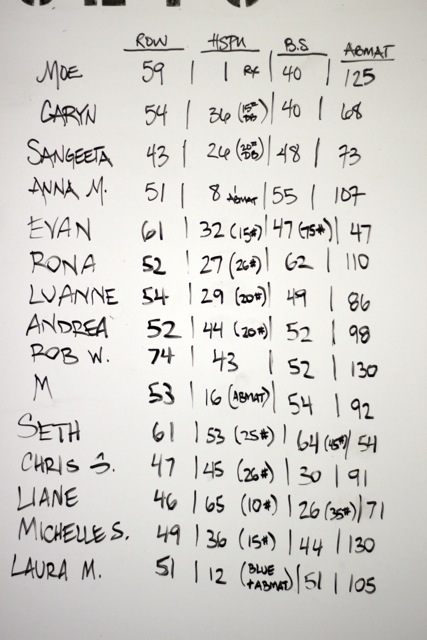 ROW HSPU B.S ABMAT
MOE 59 | 1 RX | 40 | 125
CARYN 54 | 36 (15# DB) | 40 | 68
SANGEETA 43 | 26 (20# DB) | 48 | 73
ANNA M. 51 | 8 ABMAT | 55 | 107
EVAN 61 | 32 (15#) | 47 (75#) | 47
RONA 52 | 27 (26#) | 62 | 110
LUANNE 54 | 29 (20#) | 49 | 86
ANDREA 52 | 44 (20#) | 52 | 98
ROB W. 74 | 43 | 52 | 130
M 53 | 16 (ABMAT) | 54 | 92
SETH 61 | 53 (25#) | 64 (45#) | 54
CHRIS S. 47 | 45 (26#) | 30 | 91
LIANE 46 | 65 (10#) | 26 (35#) | 71
MICHELLE S. 49 | 36 (15#) | 44 | 130
LAURA M. 51 | 12 (BLUE + ABMAT) | 51 | 105